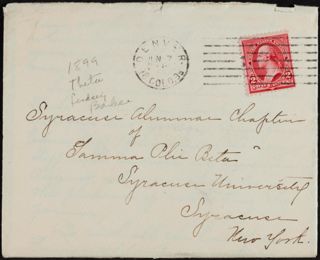 1899
Theta
Lindsey
Barker
DENVER
COLO.
2
Syracuse Alumnae Chapter
of
Gamma Phi Beta
Syracuse University
Syracuse
New York.